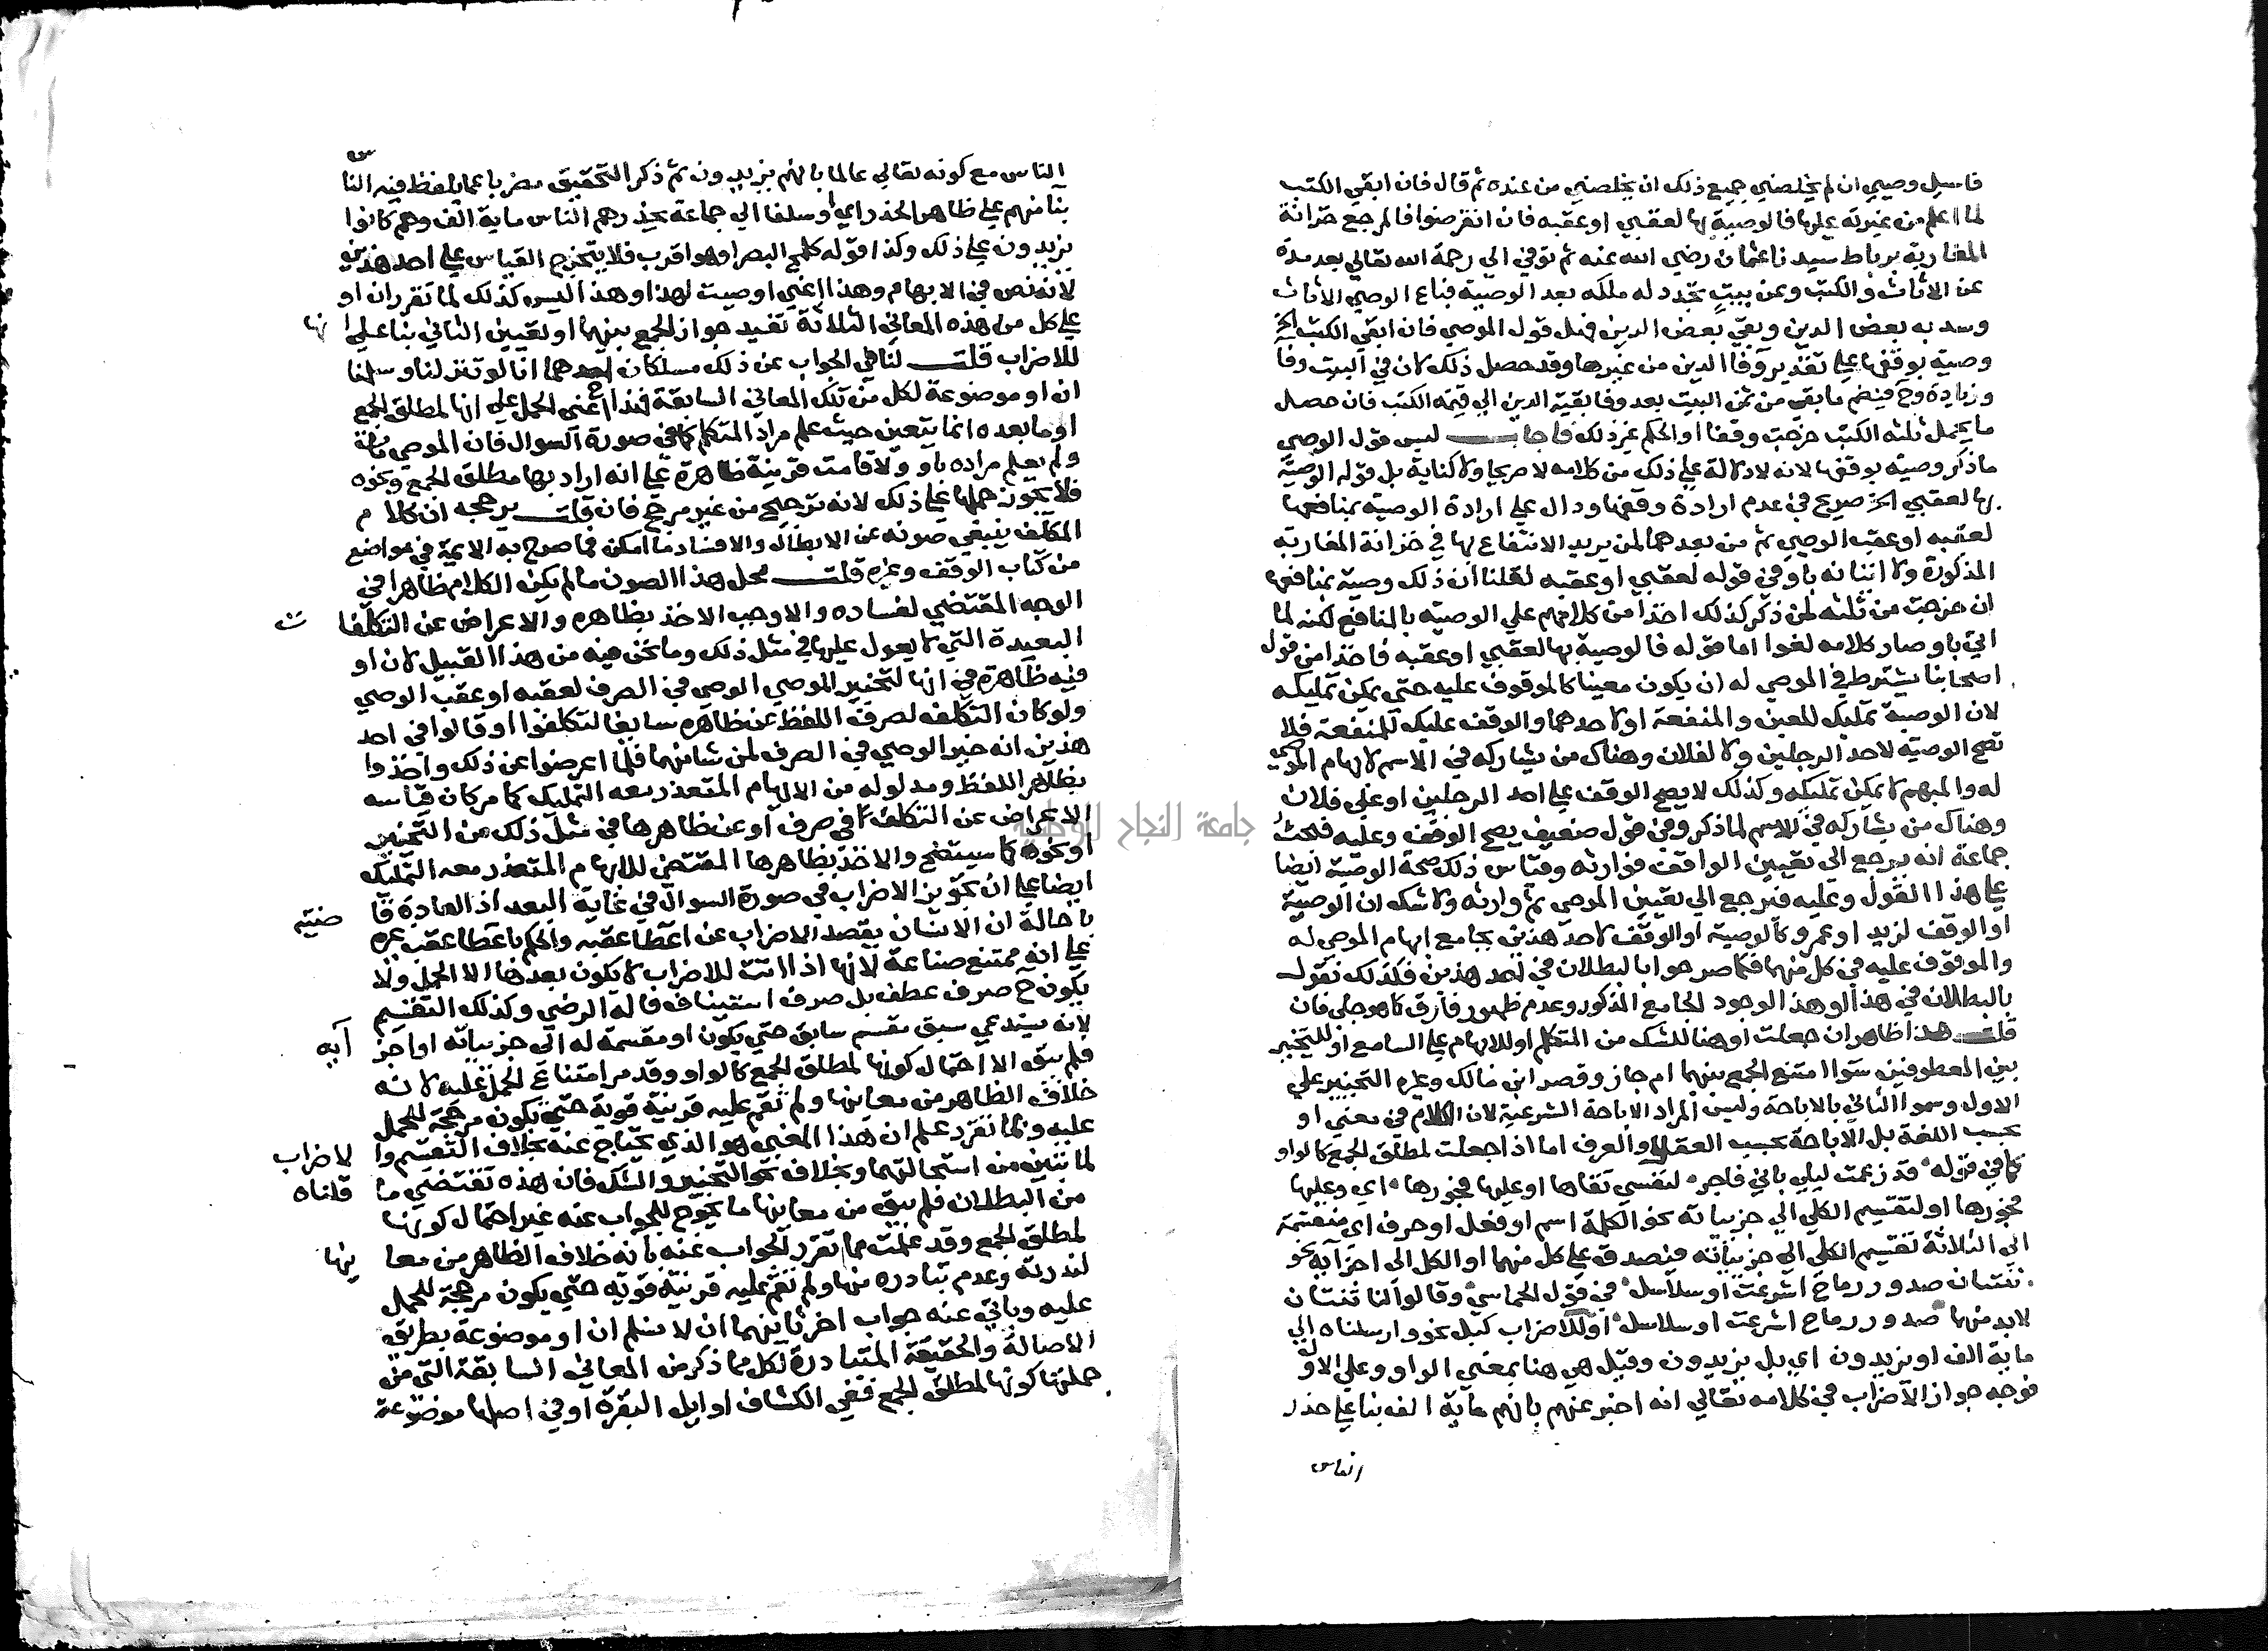 فاسيل وصيي ان لم يخلصني جميع ذلك ان يخلصني من عنده ثم قال فان ابقي الكتب
لما اعلم من غيرته عليها فالوصية بها لعقبي او عقبه فان انقرضوا فالمرجع خزانة
المغاربة برباط سيدنا عثمان رضي الله عنه ثم توفي الي رحمة الله تعالي بعد مدة
عن الاثاث والكتب وعن بيت تجدد له ملكه بعد الوصية فباع الوصي الاثاث
وسد به بعض الدين وبقي بعض الدين فهل قول الموصي فان ابقي الكتب الخ
وصية بوقفها علي تقدير وفا الدين من غيرها وقد حصل ذلك لان في البيت وفا
وزيادة وح فيضم ما بقي من ثمن البيت بعد وفا بقية الدين الي قيمة الكتب فان حصل
ما يحمل ثلثه الكتب خرجت وقفا او الحكم غير ذلك فاجاب ليس قول الوصي
ما ذكر وصية بوقفها لانه لا دلالة علي ذلك من كلامه لا صريحا ولا كناية بل قوله الوصية
بها لعقبي الخ صريح في عدم ارادة وقفها ودال علي ارادة الوصية بمنافعها
لعقبه او عقب الوصي ثم من بعدهما لمن يريد الانتفاع بها في خزانة المغاربة
المذكورة ولا اتيانه باو في قوله لعقبي او عقبه لقلنا ان ذلك وصية بمنافعها
ان خرجت من ثلثه لمن ذكر كذلك اخذا من كلامهم علي الوصية بالمنافع لكنه لما
اتي باو صار كلامه لغوا اما قوله فالوصية بها لعقبي او عقبه فاخذا من قول
اصحابنا يشترط في الموصي له ان يكون معينا كالموقوف عليه حتي يمكن تمليكه
لان الوصية تمليك للعين والمنفعة او لاحدهما والوقف تمليك للمنفعة فلا
تصح الوصية لاحد الرجلين ولا لفلان وهناك من يشاركه في الاسم لابهام الموصي
له والمبهم لا يمكن تمليكه وكذلك لا يصح الوقف علي احد الرجلين او علي فلان
وهناك من يشاركه في الاسم لما ذكر وفي قول ضعيف يصح الوقف وعليه فبحث
جماعة انه يرجع الي تعيين الواقف فوارثه وقياس ذلك صحة الوصية ايضا
علي هذا القول وعليه فيرجع الي تعيين الموصي ثم وارثه ولا شك ان الوصية
او الوقف لزيد او عمرو كالوصية او الوقف لاحد هذين بجامع ابهام الموصي له
والموقوف عليه في كل منهما فكما صرحوا بالبطلان في احد هذين فكذلك نقول
بالبطلان في هذا او هذا لوجود الجامع المذكور وعدم ظهور فارق كما هو جلي فان
قلت هذا ظاهر ان جعلت او هنا للشك من المتكلم او للابهام علي السامع او للتخيير
بين المعطوفين سوا امتنع الجمع بينهما ام جاز وقصر ابن مالك وغيره التخيير علي
الاول وسموا الثاني بالاباحة وليس المراد الاباحة الشرعية لان الكلام في معني او
بحسب اللغة بل الاباحة بحسب العقل والعرف اما اذا جعلت لمطلق الجمع كالواو
كما في قوله قد زعمت ليلي باني فاجر لنفسي تقاها او عليها فجورها اي وعليها
فجورها او لتقسيم الكلي الي جزيياته نحو الكلمة اسم او فعل او حرف اي منقسمة
الي الثلاثة تقسيم الكلي الي جزيياته فيصدق علي كل منهما او الكل الي اجزايه نحو
ثنتان صدور رماح اشرعت او سلاسل في قول الحماسي وقالوا لنا ثنتان
لابد منها صدور رماح اشرعت او سلاسل او للاضراب كبل نحو وارسلناه الي
ماية الف او يزيدون اي بل يزيدون وقيل هي هنا بمعني الواو وعلي الاول
فوجه جواز الاضراب في كلامه تعالي انه اخبر عنهم بانهم ماية الف بنا علي حذر
الناس
الناس مع كونه تعالي عالما بانهم يزيدون ثم ذكر التحقيق مضربا عما يلفظ فيه الناس
بنا منهم علي ظاهر الحذر اي ارسلنا الي جماعة يحذرهم الناس ماية الف وهم كانوا
يزيدون علي ذلك وكذا قوله كلمح البصر او هو اقرب فلا يتخرج القياس علي احد هذين
لانه نص في الابهام وهذا اعني اوصيت لهذا او هذا ليس كذلك لما تقرر ان او
علي كل من هذه المعاني الثلاثة تفيد جواز الجمع بينهما او تعيين الثاني بنا علي انها
للاضراب قلت لنا في الجواب عن ذلك مسلكان احدهما انا لو تنزلنا وسلمنا
ان او موضوعة لكل من تلك المعاني السابقة فهذا اعني الحمل علي انها لمطلق الجمع
او ما بعده انما يتعين حيث علم مراد المتكلم كما في صورة السوال فان الموصي مات
ولم يعلم مراده باو ولا قامت قرينة ظاهرة علي انه اراد بها مطلق الجمع ونحوه
فلا يجوز حملها علي ذلك لانه ترجيح من غير مرجح فان قلت يرجحه ان كلام
المكلف ينبغي صونه عن الابطال والافساد ما امكن كما صرح به الايمة في مواضع
من كتاب الوقف وغيره قلت محل هذا الصون ما لم يكن الكلام ظاهرا في
الوجه المقتضي لفساده والا وجب الاخذ بظاهره والاعراض عن التكلفات
البعيدة التي لا يعول عليها في مثل ذلك وما نحن فيه من هذا القبيل لان او
فيه ظاهرة في انها لتخيير الموصي الوصي في الصرف لعقبه او عقب الوصي
ولو كان التكلف لصرف اللفظ عن ظاهره سايغا لتكلفوا او قالوا في احد
هذين انه خير الوصي في الصرف لمن شا منهما فلما اعرضوا عن ذلك واخذوا
بظاهر اللفظ ومدلوله من الابهام المتعذر معه التمليك كما مر كان قياسه
الاعراض عن التكلف في صرف او عن ظاهرها في مثل ذلك من التخيير
او نحوه كما سيتضح والاخذ بظاهرها المقتضي للابهام المتعذر معه التمليك
ايضا علي ان تجويز الاضراب في صورة السوال في غاية البعد اذ العادة قاضية
باحالة ان الانسان يقصد الاضراب عن اعطا عقبه والحكم باعطا عقب غيره
علي انه ممتنع صناعة لانها اذا اتت للاضراب لا يكون بعدها الا الجمل ولا
يكون ح حرف عطف بل حرف استيناف قاله الرضي وكذلك التقسيم
لانه يستدعي سبق مقسم سابق حتي يكون او مقسمة له الي جزيياته او اجزايه
فلم يبق الا احتمال كونها لمطلق الجمع كالواو وقد مر امتناع الحمل عليه لانه
خلاف الظاهر من معانيها ولم تقم عليه قرينة قوية حتي تكون مرجحة للحمل
عليه وبما تقرر علم ان هذا المعني هو الذي يحتاج عنه بخلاف التقسيم والاضراب
لما تبين من استحالتهما وبخلاف نحو التخيير والشك فان هذه تقتضي ما قلناه
من البطلان فلم يبق من معانيها ما يحوج للجواب عنه غير احتمال كونها
لمطلق الجمع وقد علمت مما تقرر الجواب عنه بانه خلاف الظاهر من معانيها
لندرته وعدم تبادره منها ولم تقم عليه قرينة قوية حتي يكون مرجحة للحمل
عليه وياتي عنه جواب اخر ثانيهما ان لا نسلم ان او موضوعة بطريق
الاصالة والحقيقة المتبادرة لكل مما ذكر من المعاني السابقة التي من
جملتها كونها لمطلق الجمع ففي الكشاف اوايل البقرة او في اصلها موضوعة
جامعة النجاح الوطنية